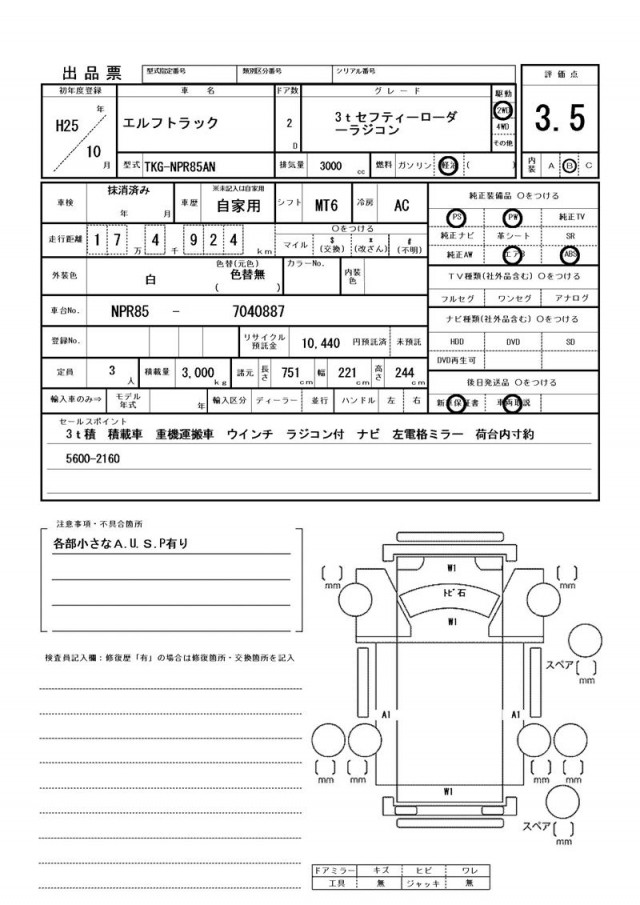 出品票 型式指定番号 類別区分番号 シリアル番号 評価点
初年度登録 車名 ドア数 グレード 駆動 3.5
H25 年 10 月 エルフトラック 2 D 3tセフティーローダーラジコン 2WD 4WD その他
型式 TKG-NPR85AN 排気量 3000 cc 燃料 ガソリン 軽油 ( ) 内装 A B C
車検 抹消済み 年 月 車歴 ※未記入は自家用 自家用 シフト MT6 冷房 AC 純正装備品 〇をつける
走行距離 1 7 万 4 千 9 2 4 km 〇をつける マイル $ (交換) * (改ざん) # (不明) PS PW 純正TV
純正ナビ 革シート SR
外装色 白 色替(元色) 色替無 ( ) カラーNo. 内装色 純正AW エアB ABS
TV種類(社外品含む) 〇をつける
フルセグ ワンセグ アナログ
車台No. NPR85 - 7040887 ナビ種類(社外品含む) 〇をつける
登録No. リサイクル預託金 10,440 円預託済 未預託 HDD DVD SD
DVD再生可
定員 3 人 積載量 3,000 kg 諸元 長さ 751 cm 幅 221 cm 高さ 244 cm 後日発送品 〇をつける
輸入車のみ⇒ モデル年式 年 輸入区分 ディーラー 並行 ハンドル 左 右 新車保証書 車両取説
セールスポイント
3t積 積載車 重機運搬車 ウインチ ラジコン付 ナビ 左電格ミラー 荷台内寸約
5600-2160
注意事項・不具合箇所
各部小さなA.U.S.P有り
検査員記入欄:修復歴「有」の場合は修復箇所・交換箇所を記入
W1
ﾄﾋﾞ石
W1
mm mm
スペア mm
A1 A1
mm mm mm mm
W1
スペア mm
ドアミラー キズ ヒビ ワレ
工具 無 ジャッキ 無